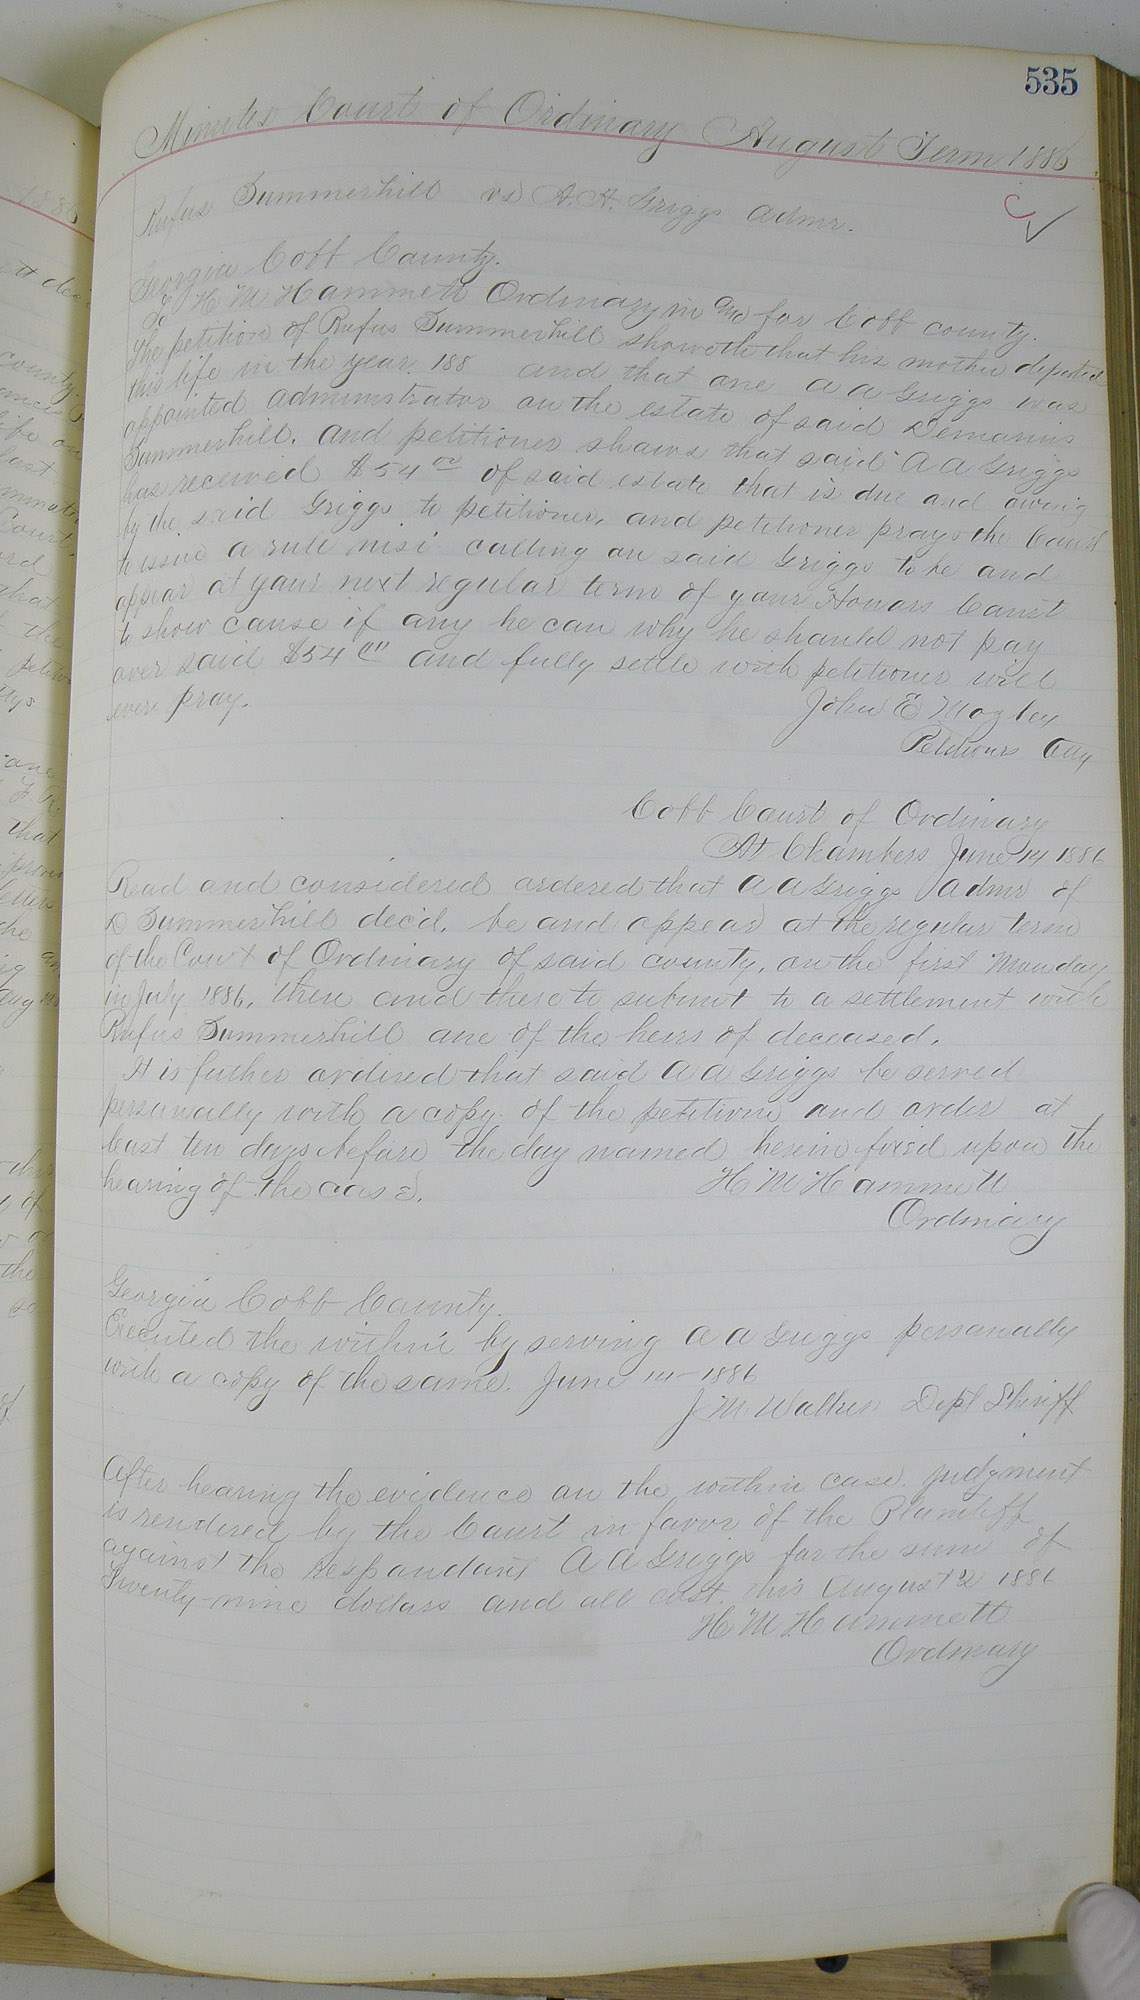 535
Minutes Court of Ordinary August Term 1886
Rufus Summerhill vs A. A. Griggs admr.
Georgia Cobb County.
To H M Hammett Ordinary in and for Cobb county.
The petition of Rufus Summerhill showeth that his mother departed
this life in the year 188 and that one A A Griggs was
appointed administrator on the estate of said
Summerhill. and petitioner shows that said A A Griggs
has received $54 of said estate that is due and owing
by the said Griggs to petitioner, and petitioner prays the Court
to issue a rule nisi calling on said Griggs to be and
appear at your next regular term of your Honors Court
to show cause if any he can why he should not pay
over said $54 and fully settle with petitioner will
ever pray.
John E Mozley
Petitioners Atty
Cobb Court of Ordinary
At Chambers June 14 1886
Read and considered ordered that A A Griggs admr of
D Summerhill decd. be and appear at the regular term
of the Court of Ordinary of said county, on the first Monday
in July 1886. then and there to submit to a settlement with
Rufus Summerhill one of the heirs of deceased.
It is futher ordired that said A A Griggs be served
personally with a copy of the petition and order at
least ten days before the day named herein fixed upon the
hearing of the case.
H M Hammett
Ordinary
Georgia Cobb County.
Executed the within by serving A A Griggs personally
with a copy of the same. June 14 - 1886
J. M. Walker Dept Sheriff
After hearing the evidence on the within case. judgment
is rendered by the Court in favor of the Plaintiff
against the respondant A A Griggs for the sum of
Twenty-nine dollars and all cost. this August 2 1886
H M Hammett
Ordinary